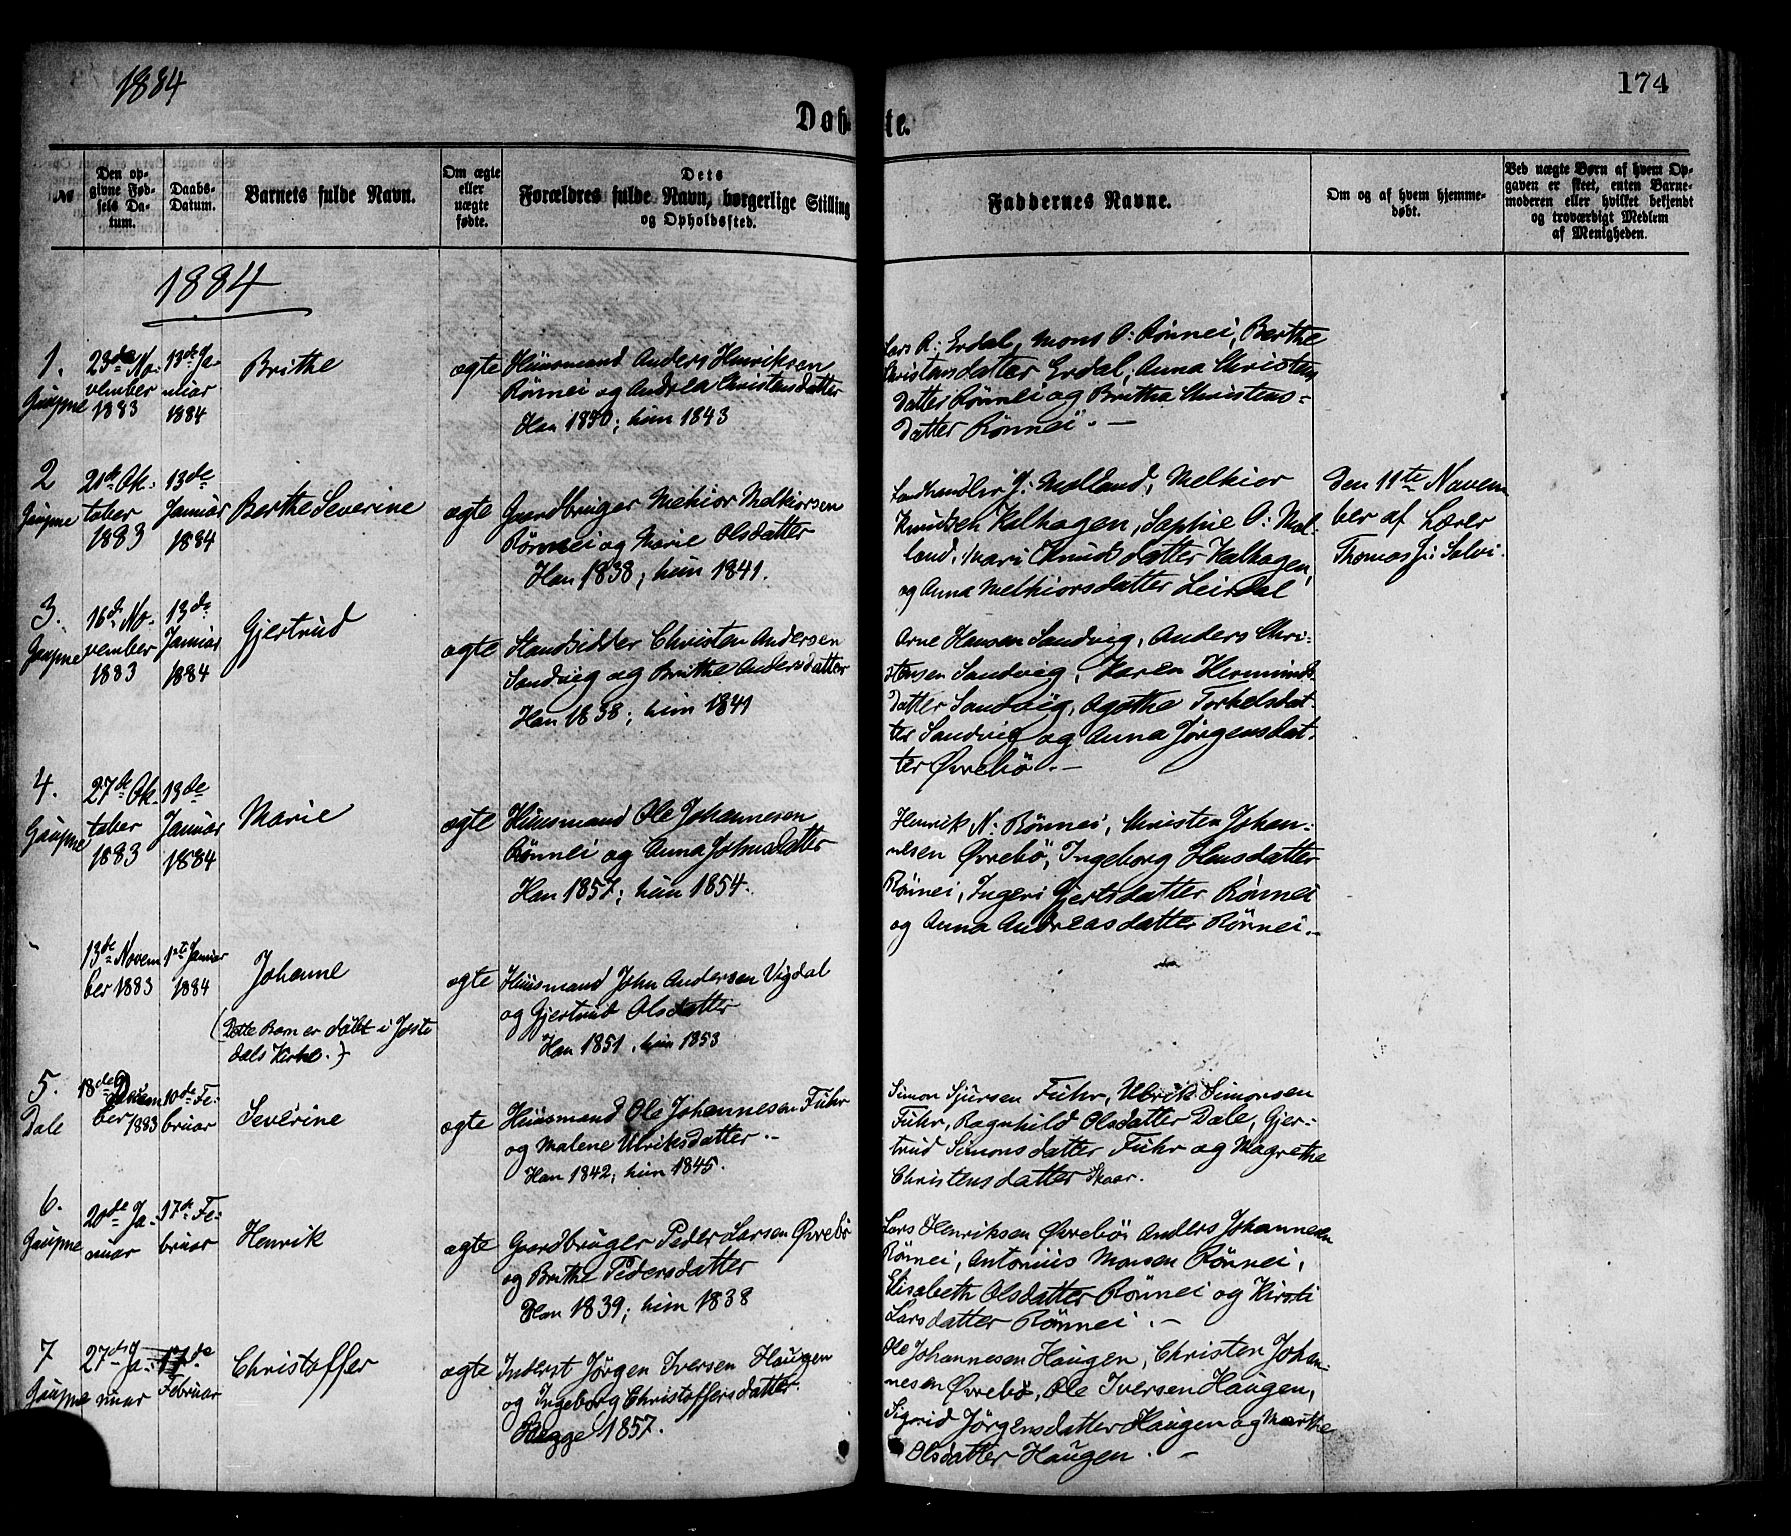 1884
174
Døbte.
No
Den opgivne Fødsels Datum.
Daabs-Datum.
Barnets fulde Navn.
Om ægte eller uægte fødte.
Dets Forældres fulde Navn, borgerlige Stilling og Opholdssted.
Faddernes Navne.
Om og af hvem hjemmedøbt.
Ved uægte Børn af hvem Opgaven er skeet, enten Barnemoderen eller hvilket bekjendt og troværdigt Medlem af Menigheden.
1884
1.
Gaupne
23de No-
vember
1883
13de Ja-
nuar
1884
Brithe
ægte
Huusmand Anders Henriksen
Rønnei og Andrea Christensdatter
Han 1850; hun 1843
Lars R: Erdal, Mons O: Rønnei, Berthe
Christensdatter Erdal, Anna Christens
datter Rønnei og Brithe Christens=
datter Rønnei. —
2
Gaupne
21de Ok-
tober
1883
13de
Januar
1884
Berthe Severine
ægte
Gaardbruger Melkior Melkiorsen
Rønnei og Marie Olsdatter
Han 1838; hun 1841.
Landhandler J: Molland, Melkior
Knudsen Kalhagen, Sophie O: Mol-
land, Mari Knudsdatter Kalhagen,
og Anna Melkiorsdatter Leirdal
Den 11te Novem
ber af Lærer
Thomas J: Solvi.
3.
Gaupne
16de No-
vember
1883
13de
Januar
1884
Gjertrud
ægte
Strandsidder Christen Andersen
Sandvig og Brithe Andersdatter
Han 1838; hun 1841
Arne Hansen Sandvig, Anders Chri-
stensen Sandvig, Karen Hermunds
datter Sandvig, Agathe Torkelsdat-
ter Sandvig og Anna Jørgensdat-
ter Øvrebø. —
4.
Gaupne
27de Ok-
tober
1883
13de
Januar
1884
Marie
ægte
Huusmand Ole Johannesen
Rønnei og Anna Johnsdatter
Han 1857; hun 1854.
Henrik N: Rønnei, Christen Johan-
nesen Øvrebø, Ingeborg Hansdatter
Rønnei, Ingeri Gjertsdatter Rønnei
og Anna Andreasdatter Rønnei. —
13de Novem
ber 1883
1ste Januar
1884
Johanne
(Dette Barn er døbt i Joste
dals Kirke.)
ægte
Huusmand John Andersen Vigdal
og Gjertrud Olsdatter
Han 1851, hun 1853
5.
Dale
18de Decem
ber 1883
10de Fe-
bruar
Severine
ægte
Huusmand Ole Johannesen Fuhr
og Malene Ulriksdatter. -
Han 1842; hun 1845.
Simon Sjursen Fuhr, Ulrik Simonsen
Fuhr, Ragnhild Olsdatter Dale, Gjer-
trud Simonsdatter Fuhr og Magrethe
Christensdatter Skaar.
6.
Gaupne
20de Ja-
nuar
17de Fe-
bruar
Henrik
ægte
Gaardbruger Peder Larsen Øvrebø
og Brithe Pedersdatter
Han 1839; hun 1838
Lars Henriksen Øvrebø, Anders Johannesen
Rønnei, Antonius Monsen Rønnei,
Elisabeth Olsdatter Rønnei og Kirsti
Larsdatter Rønnei. —
7
Gaupne
27de Ja-
nuar
17de
Februar
Christoffer
ægte
Inderst Jørgen Iversen Haugen
og Ingeborg Christoffersdatter.
Begge 1857.
Ole Johannesen Haugen, Christen Johan-
nesen Øvrebø, Ole Iversen Haugen,
Sigrid Jørgensdatter Haugen og Marthe
Olsdatter Haugen. —